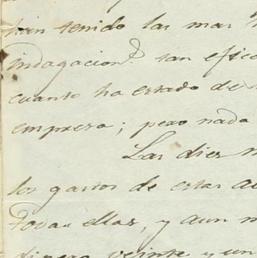 han tenido las mas
indagacion.s tan efica
cuanto ha estado de
empresa; pero nada
Las dies
los gastos de estas a
todas ellas, y aun m
dinero veinte y un